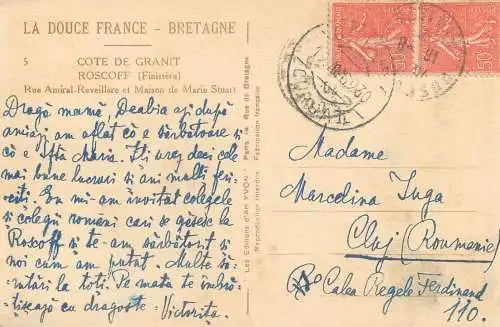 LA DOUCE FRANCE - BRETAGNE
5 COTE DE GRANIT
ROSCOFF (Finistère)
Rue Amiral-Reveillère et Maison de Marie Stuart
Dragă mamă, Deabia azi după
amiazi am aflat că e sărbătoare și
că e Sfta Maria. Iți urez deci cele
mai bune lucruri și ani mulți feri-
ciți. Eu mi-am invitat colegele
și colegii români cari se găsesc la
Roscoff și te-am sărbătorit și
noi cum am putut. Multe să-
rutări la toți. Pe mata te îmbră-
țișează cu dragoste - Victorița.
Les Editions d'Art YVON - Paris, 15, Rue de Bretagne
Reproduction interdite Fabrication française
Madame
Marcelina Iuga
Cluj (Roumanie)
Calea Regele Ferdinand
110.